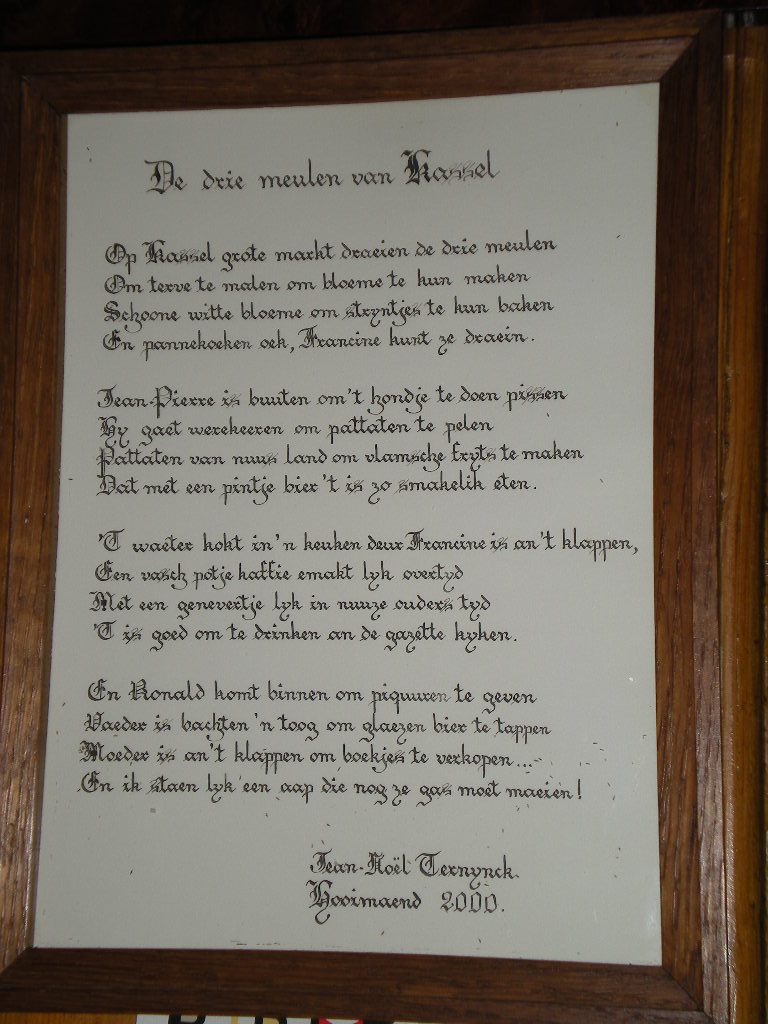 De drie meulen van Kassel
Op Kassel grote markt draeien de drie meulen
Om terve te malen om bloeme te kun maken
Schoone witte bloeme om stryntjes te kun baken
En pannekoeken oek, Francine kunt ze draein.
Jean-Pierre is buuten om't hondje te doen pissen
Hy gaet werekeeren om pattaten te pelen
Pattaten van nuus land om vlamsche fryts te maken
Dat met een pintje bier't is zo smakelik eten.
'T waeter kokt in 'n keuken deur Francine is an't klappen,
Een vasch potje kaffie emakt lyk overtyd
Met een genevertje lyk in nuuze ouders tyd
'T is goed om te drinken an de gazette kyken.
En Ronald komt binnen om piquuren te geven
Vaeder is bachten 'n toog om glaezen bier te tappen
Moeder is an't klappen om boekjes te verkopen...
En ik staen lyk een aap die nog ze gas moet maeien!
Jean-Noël Ternynck.
Hooimaend 2000.